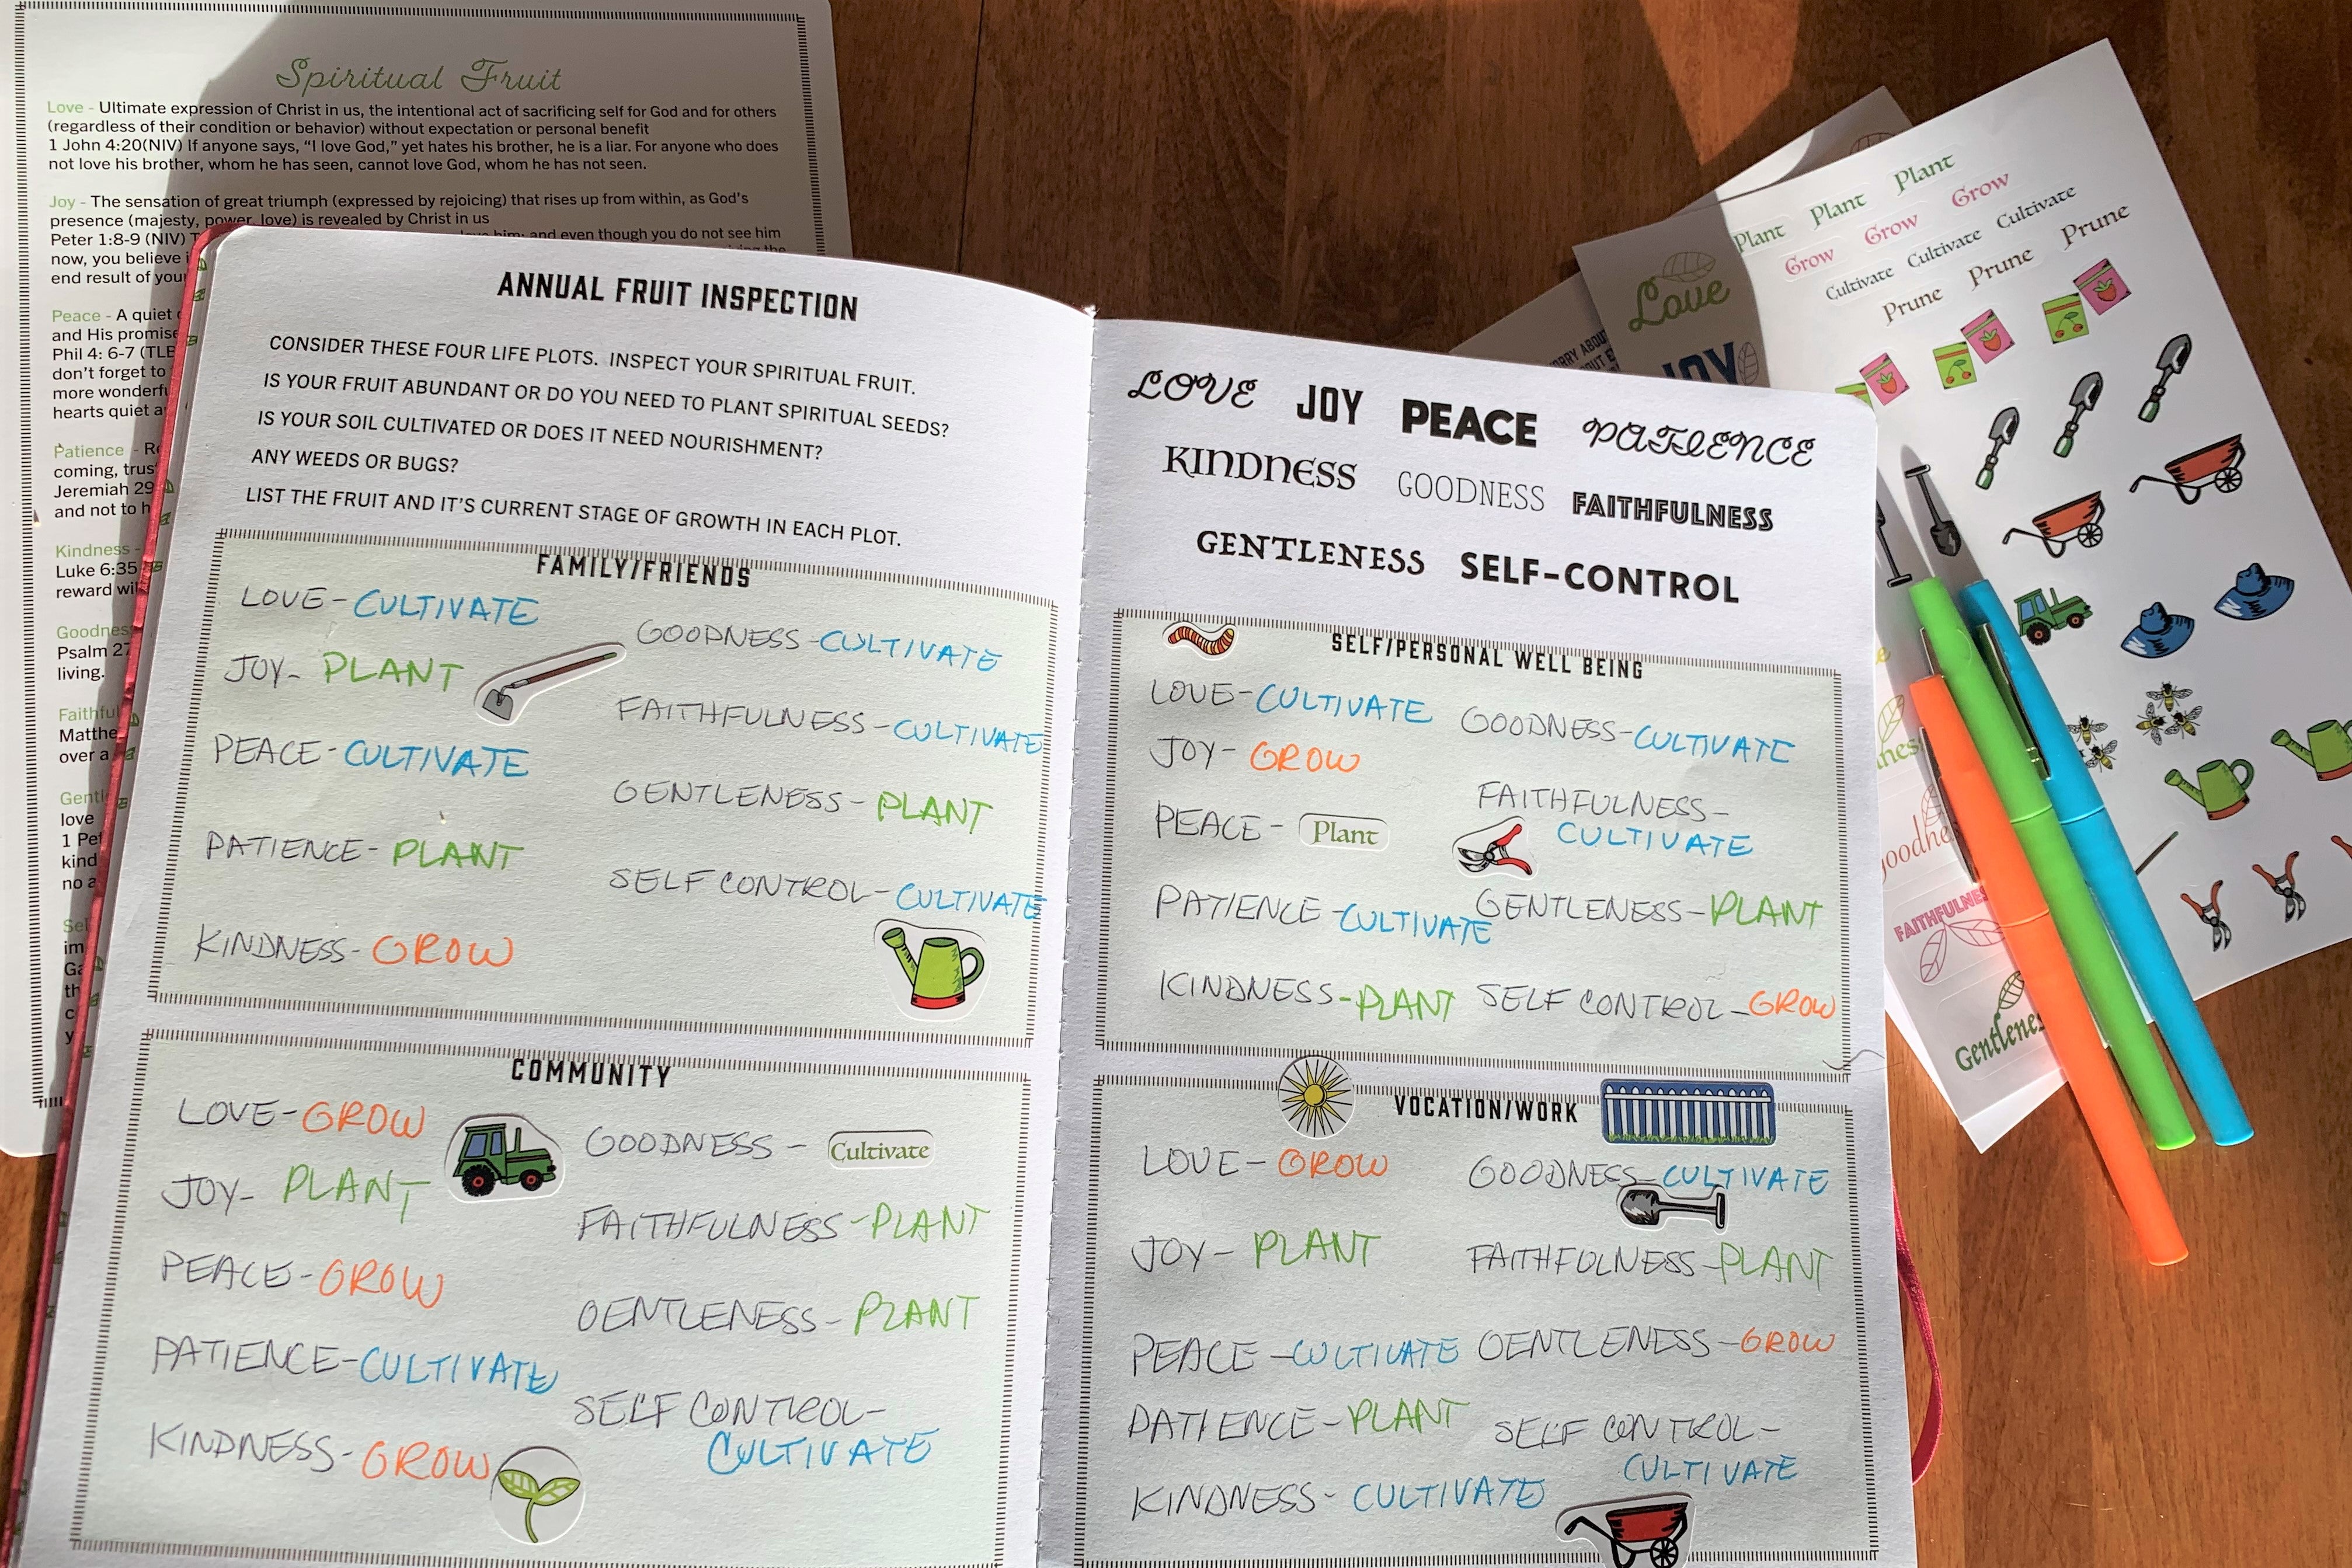 Spiritual Fruit
Love - Ultimate expression of Christ in us, the intentional act of sacrificing self for God and for others
(regardless of their condition or behavior) without expectation or personal benefit
1 John 4:20(NIV) If anyone says, “I love God,” yet hates his brother, he is a liar. For anyone who does
not love his brother, whom he has seen, cannot love God, whom he has not seen.
Joy - The sensation of great triumph (expressed by rejoicing) that rises up from within, as God's
presence (majesty, power, love) is revealed by Christ in us
Peter 1:8-9 (NIV) him; and even though you do not see him
now, you believe
end result of your
Peace - A quiet
and His promise
Phil 4: 6-7 (TLB
don't forget to
more wonderful
hearts quiet
Patience -
coming, trus
Jeremiah 29
and not to h
Kindness -
Luke 6:35
reward wil
Goodness
Psalm 27
living.
Faithful
Matthe
over a
Gentle
love
1 Pet
kind
no a
Sel
im
Ga
th
c
y
ANNUAL FRUIT INSPECTION
CONSIDER THESE FOUR LIFE PLOTS. INSPECT YOUR SPIRITUAL FRUIT.
IS YOUR FRUIT ABUNDANT OR DO YOU NEED TO PLANT SPIRITUAL SEEDS?
IS YOUR SOIL CULTIVATED OR DOES IT NEED NOURISHMENT?
ANY WEEDS OR BUGS?
LIST THE FRUIT AND IT'S CURRENT STAGE OF GROWTH IN EACH PLOT.
FAMILY/FRIENDS
LOVE-CULTIVATE
JOY- PLANT
PEACE-CULTIVATE
PATIENCE-PLANT
KINDNESS-GROW
GOODNESS-CULTIVATE
FAITHFULNESS-CULTIVATE
GENTLENESS-PLANT
SELF CONTROL-CULTIVATE
COMMUNITY
LOVE-GROW
JOY- PLANT
PEACE-GROW
PATIENCE-CULTIVATE
KINDNESS-GROW
GOODNESS- Cultivate
FAITHFULNESS-PLANT
GENTLENESS-PLANT
SELF CONTROL-
CULTIVATE
LOVE JOY PEACE PATIENCE
KINDNESS GOODNESS FAITHFULNESS
GENTLENESS SELF-CONTROL
SELF/PERSONAL WELL BEING
LOVE-CULTIVATE
JOY- GROW
PEACE- Plant
PATIENCE-CULTIVATE
KINDNESS-PLANT
GOODNESS-CULTIVATE
FAITHFULNESS-
CULTIVATE
GENTLENESS-PLANT
SELF CONTROL-GROW
VOCATION/WORK
LOVE-GROW
JOY- PLANT
PEACE-CULTIVATE
PATIENCE-PLANT
KINDNESS- CULTIVATE
GOODNESS-CULTIVATE
FAITHFULNESS-PLANT
GENTLENESS-GROW
SELF CONTROL-
CULTIVATE
Love
JOY
FAITHFULNESS
Gentlenes
Plant Plant Plant
Grow Grow Grow
Cultivate Cultivate Cultivate
Prune Prune Prune